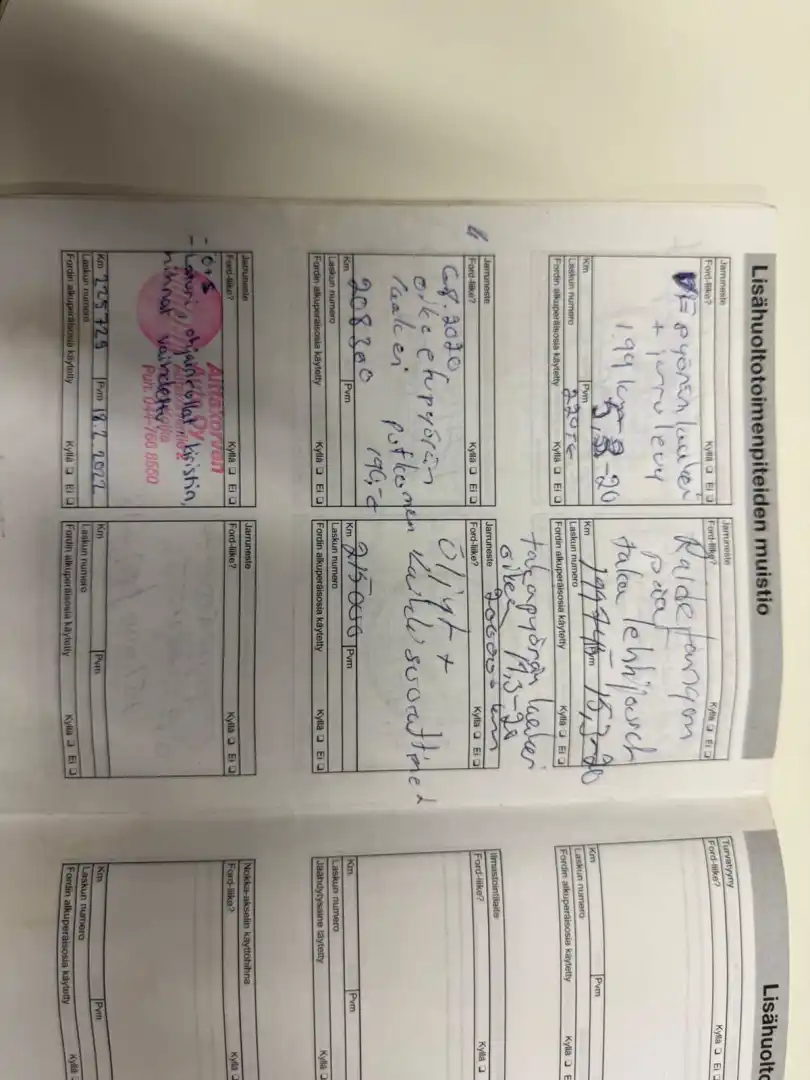 Lisähuoltotoimenpiteiden muistio
Jarruneste
Ford-liike? Kyllä ❑ Ei ❑
pyörän laakeri
+ jarrulevy
199
5,3-20
Km Pvm
Laskun numero
Fordin alkuperäisosia käytetty Kyllä ❑ Ei ❑
Jarruneste
Ford-liike? Kyllä ❑ Ei ❑
Raidetangon
päät
taka
Km Pvm 15,3-20
Laskun numero
Fordin alkuperäisosia käytetty Kyllä ❑ Ei ❑
takapyörän laakeri
oikea
Jarruneste
Ford-liike? Kyllä ❑ Ei ❑
6.8.2020
oikea etupyörän
laakeri
190,-€
Km 208300 Pvm
Laskun numero
Fordin alkuperäisosia käytetty Kyllä ❑ Ei ❑
Jarruneste 200000 km
Ford-liike? Kyllä ❑ Ei ❑
Öljyt +
kaikki suodattimet
Km 215000 Pvm
Laskun numero
Fordin alkuperäisosia käytetty Kyllä ❑ Ei ❑
Jarruneste
Ford-liike? Kyllä ❑ Ei ❑
- Laturin, ohjainrullat, kiristin,
hihnat vaihdettu
Puh. 044-760 8600
Km 225729 Pvm 18.2.2022
Laskun numero
Fordin alkuperäisosia käytetty Kyllä ❑ Ei ❑
Jarruneste
Ford-liike? Kyllä ❑ Ei ❑
Km Pvm
Laskun numero
Fordin alkuperäisosia käytetty Kyllä ❑ Ei ❑
Turvatyyny
Ford-liike? Kyllä ❑ Ei
Km Pvm
Laskun numero
Fordin alkuperäisosia käytetty Kyllä ❑
Ilmastointilaite
Ford-liike? Kyllä ❑
Km Pvm
Laskun numero
Jäähdytysaine täytetty Kyllä ❑
Nokka-akselin käyttöhihna
Ford-liike? Kyllä
Km Pvm
Laskun numero
Fordin alkuperäisosia käytetty Kyllä